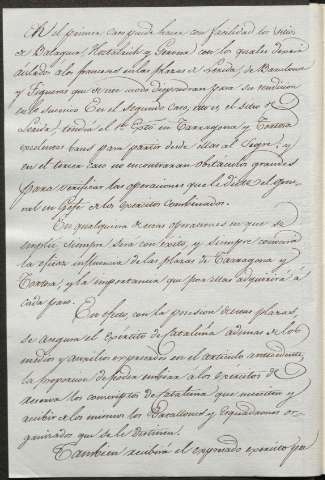 En el primer caso puede hacer con facilidad los sitios
de Balaguer, Hostalrich y Gerona con los quales dexará
aislados á los franceses en las plazas de Lerida, de Barcelona
y Figueras que de un modo dependeran para su rendicion
en lo sucesivo. En el segundo caso, esto es, el sitio de
Lerida, tendrá el 1er Exto en Tarragona y Tortosa
excelentes bases para partir desde ellas al Segre; y
en el tercer caso no encontraran obstaculos grandes
para verificar las operaciones que le dicte el gene-
ral en Gefe de los Exercitos combinados.
En qualquiera de esas operaciones en que se
emplee siempre será con exito, y siempre conocerá
la eficaz influencia de las plazas de Tarragona y
Tortosa, y la importancia que por ellas adquirirá á
cada paso.
En efecto con la posesion de esas plazas,
se asegura el Exército de Cataluña ademas de los
medios y auxilios expresados en el articulo antecedente,
la proporcion de poder embiar á los exercitos de
reserva los conscriptos de Cataluña que necesiten y
recibir de los mismos los Batallones y Esquadrones or-
ganizados que se le destinen.
Tambien recibirá el expresado exercito por